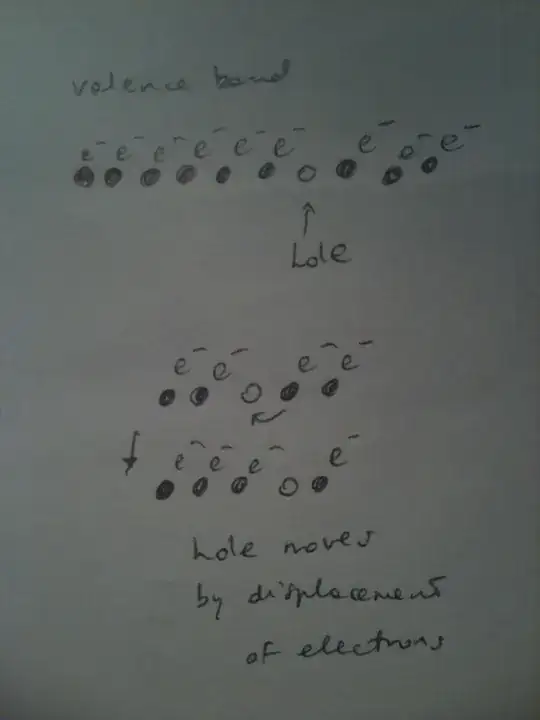 valence band
e⁻ e⁻ e⁻ e⁻ e⁻ e⁻ e⁻ e⁻ e⁻
hole
e⁻ e⁻ e⁻ e⁻
e⁻ e⁻ e⁻ e⁻
hole moves
by displacement
of electrons